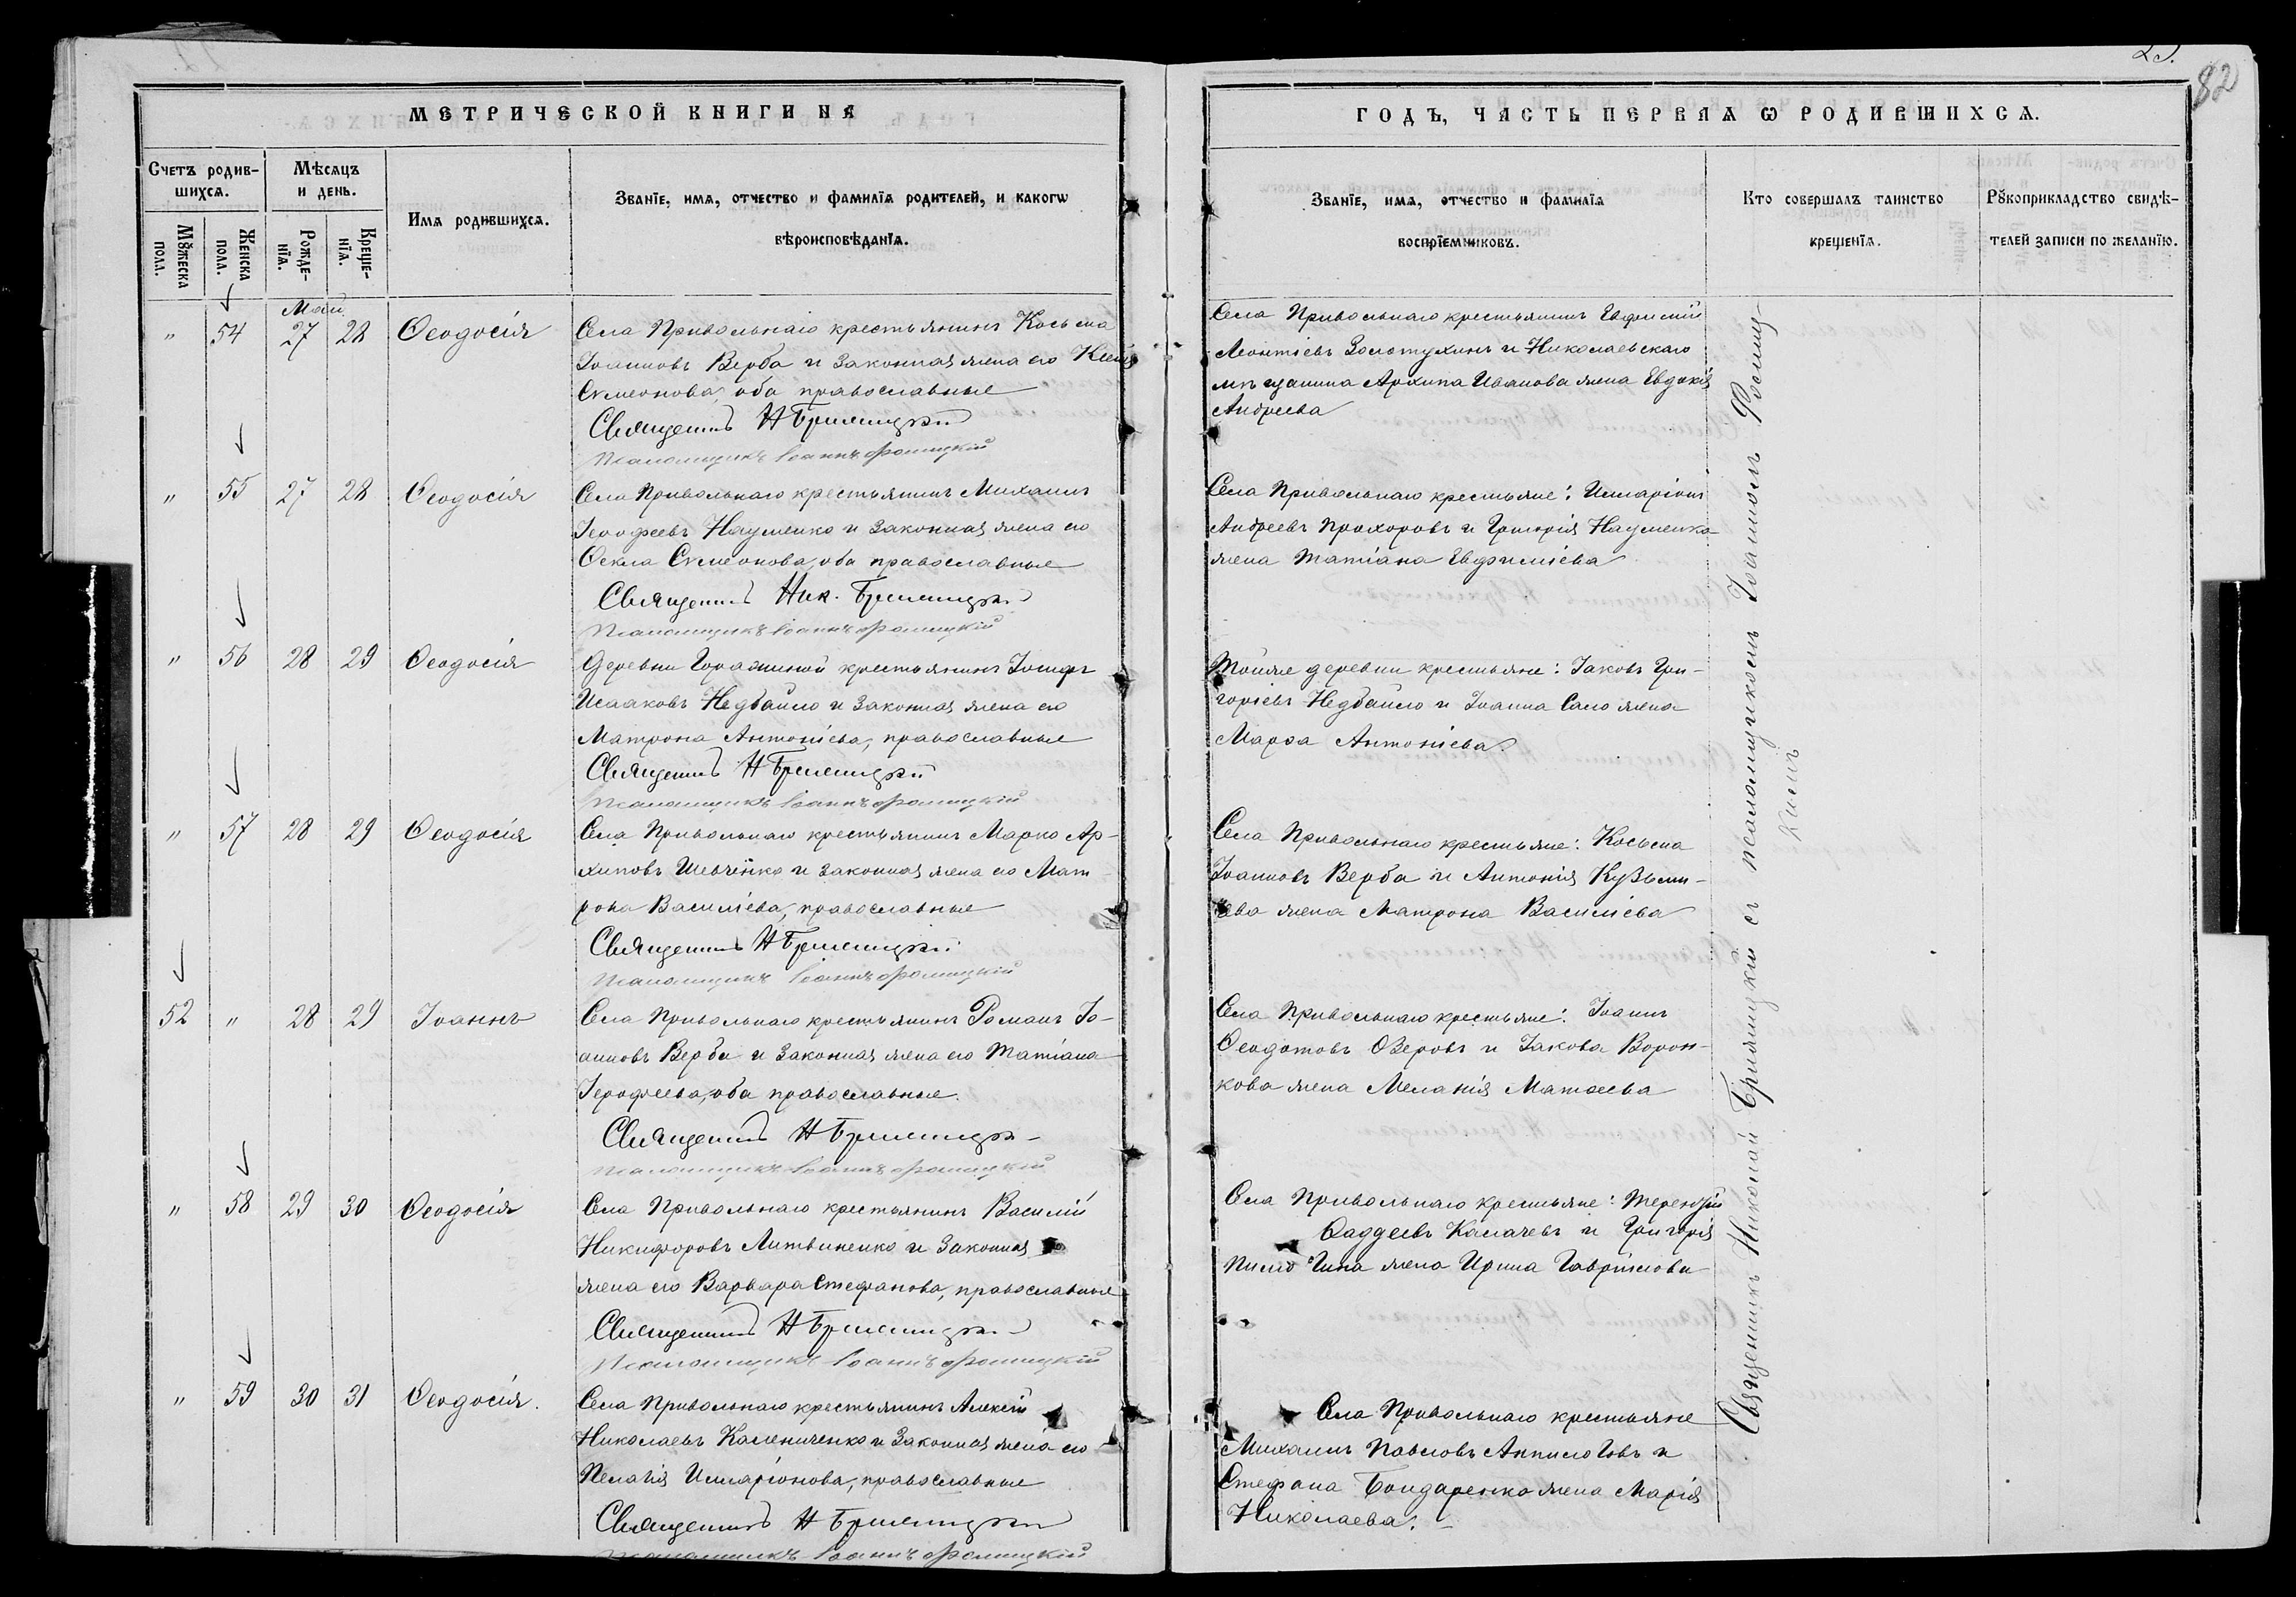 МЕТРИЧЕСКОЙ КНИГИ НА
Счетъ родив-
шихсѧ.
Мѣсѧцъ
и день.
Имѧ родившихсѧ.
Званїе, имѧ, отчество и фамилїѧ родителей, и какогѡ
вѣроисповѣданїѧ.
Мꙋжеска
пола.
Женска
пола.
Рожде-
нїѧ.
Креще-
нїѧ.
Май
" 54 27 28 Ѳеодосія Села Привольнаго крестьянинъ Косьма
Іоанновъ Верба и законная жена его Ксенія
Симеонова, оба православные
Священникъ Н Брилницкій
Псаломщикъ Іоаннъ Фомицкій
" 55 27 28 Ѳеодосія Села Привольнаго крестьянинъ Михаилъ
Іерофеевъ Науменко и законная жена его
Ѳекла Симеонова, оба православные
Священникъ Ник. Брилницкій
Псаломщикъ Іоаннъ Фомицкій
" 56 28 29 Ѳеодосія Деревни Горожиной крестьянинъ Іосифъ
Исааковъ Недбайло и законная жена его
Матрона Антоніева, православные
Священникъ Н Брилницкій
Псаломщикъ Іоаннъ Фомицкій
" 57 28 29 Ѳеодосія Села Привольнаго крестьянинъ Марко Ар-
хиповъ Шевченко и законная жена его Мат
рона Василіева, православные
Священникъ Н Брилницкій
Псаломщикъ Іоаннъ Фомицкій
52 " 28 29 Іоаннъ Села Привольнаго крестьянинъ Романъ Іо-
анновъ Верба и законная жена его Татіана
Іерофеева, оба православные.
Священникъ Н Брилницкій
Псаломщикъ Іоаннъ Фомицкій
" 58 29 30 Ѳеодосія Села Привольнаго крестьянинъ Василій
Никифоровъ Литвиненко и законная
жена его Варвара Стефанова, православные
Священникъ Н Брилницкій
Псаломщикъ Іоаннъ Фомицкій
" 59 30 31 Ѳеодосія. Села Привольнаго крестьянинъ Алексій
Николаевъ Калениченко и законная жена его
Пелагія Илларіонова, православные
Священникъ Н Брилницкій
Псаломщикъ Іоаннъ Фомицкій
82
ГОДЪ, ЧАСТЬ ПЕРВАѦ Ѡ РОДИВШИХСѦ.
Званїе, имѧ, отчество и фамилїѧ
воспрїемниковъ.
Кто совершалъ таинство
крещенїѧ.
Рꙋкоприкладство свидѣ-
телей записи по желанїю.
Села Привольнаго крестьянинъ Евфимій
Леонтіевъ Золотухинъ и Николаевскаго
мѣщанина Архипа Иванова жена Евдокія
Андреева
Села Привольнаго крестьяне: Илларіонъ
Андреевъ Прохоровъ и Григорія Науменка
жена Татіана Евфиміева
Тойже деревни крестьяне: Іаковъ Гри-
горіевъ Недбайло и Іоанна Сало жена
Марѳа Антоніева
Села Привольнаго крестьяне: Косьма
Іоанновъ Верба и Антонія Кузьми-
жена Матрона Василіева
Села Привольнаго крестьяне: Іоаннъ
Ѳеодотовъ Озеровъ и Іакова Ворон-
кова жена Меланія Матѳеева
Села Привольнаго крестьяне: Терентій
Ѳаддеевъ Калачевъ и Григорія
жена Ирина Гавриилова
Села Привольнаго крестьяне
Михаилъ Павловъ Анпилоговъ и
Стефана Бондаренко жена Марія
Николаева.
Священникъ Николай Брилницкій съ псаломщикомъ Іоанномъ Фомиц-
кимъ